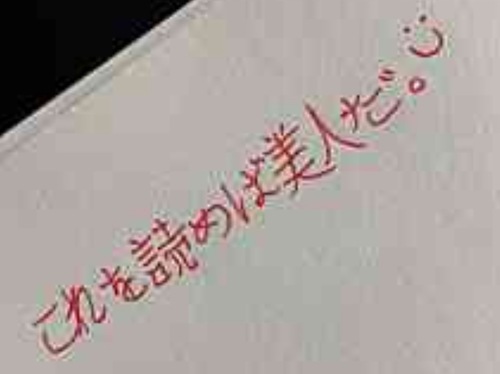 これを読めば美人だ。:)